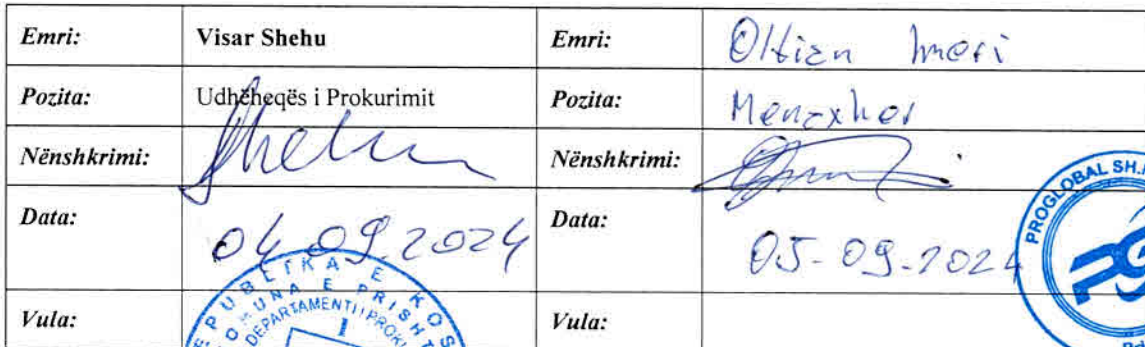 Emri: Visar Shehu Emri: Oltian Imeri
Pozita: Udhëheqës i Prokurimit Pozita: Menaxher
Nënshkrimi: Nënshkrimi:
Data: 04.09.2024 Data: 05-09-2024
Vula: Vula:
REPUBLIKA E KOS
KOMUNA E PRISHT
DEPARTAMENTI I PROKU
1
PROGLOBAL SH.P